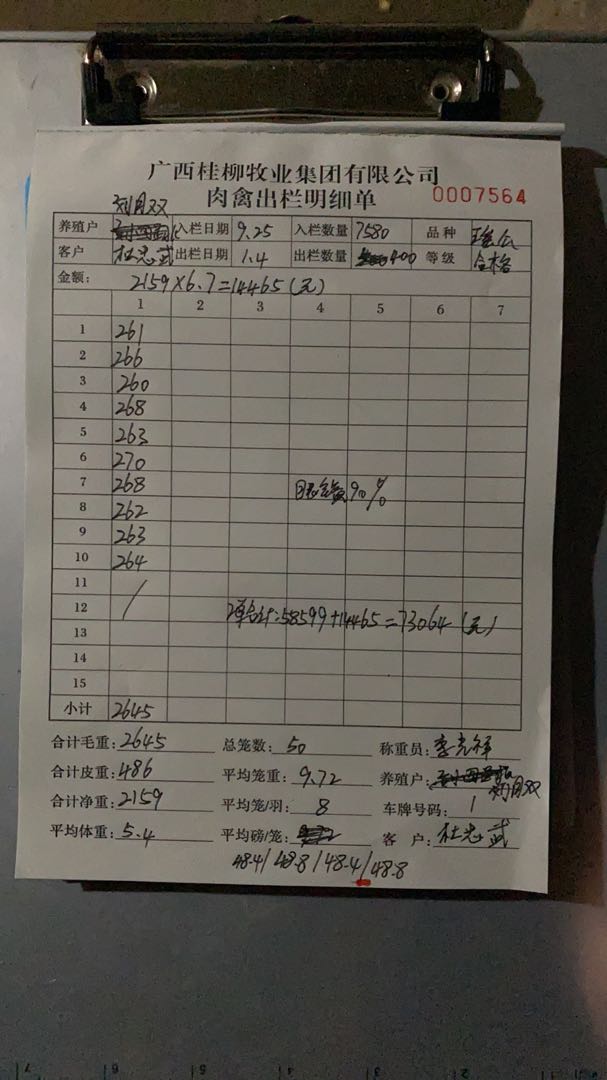 广西桂柳牧业集团有限公司
肉禽出栏明细单 0007564
刘月双
养殖户 入栏日期 9.25 入栏数量 7580 品种
客户 杜忠武 出栏日期 1.4 出栏数量 400 等级 合格
金额: 2159×6.7=14465(元)
1 2 3 4 5 6 7
1 261
2 266
3 260
4 268
5 263
6 270
7 268 90%
8 262
9 263
10 264
11
12 /
13 合计:58599+14465=73064(元)
14
15
小计 2645
合计毛重: 2645 总笼数: 50 称重员: 李光祥
合计皮重: 486 平均笼重: 9.72 养殖户: 刘月双
合计净重: 2159 平均笼/羽: 8 车牌号码: 1
平均体重: 5.4 平均磅/笼: 客户: 杜忠武
48.4/48.8/48.4/48.8